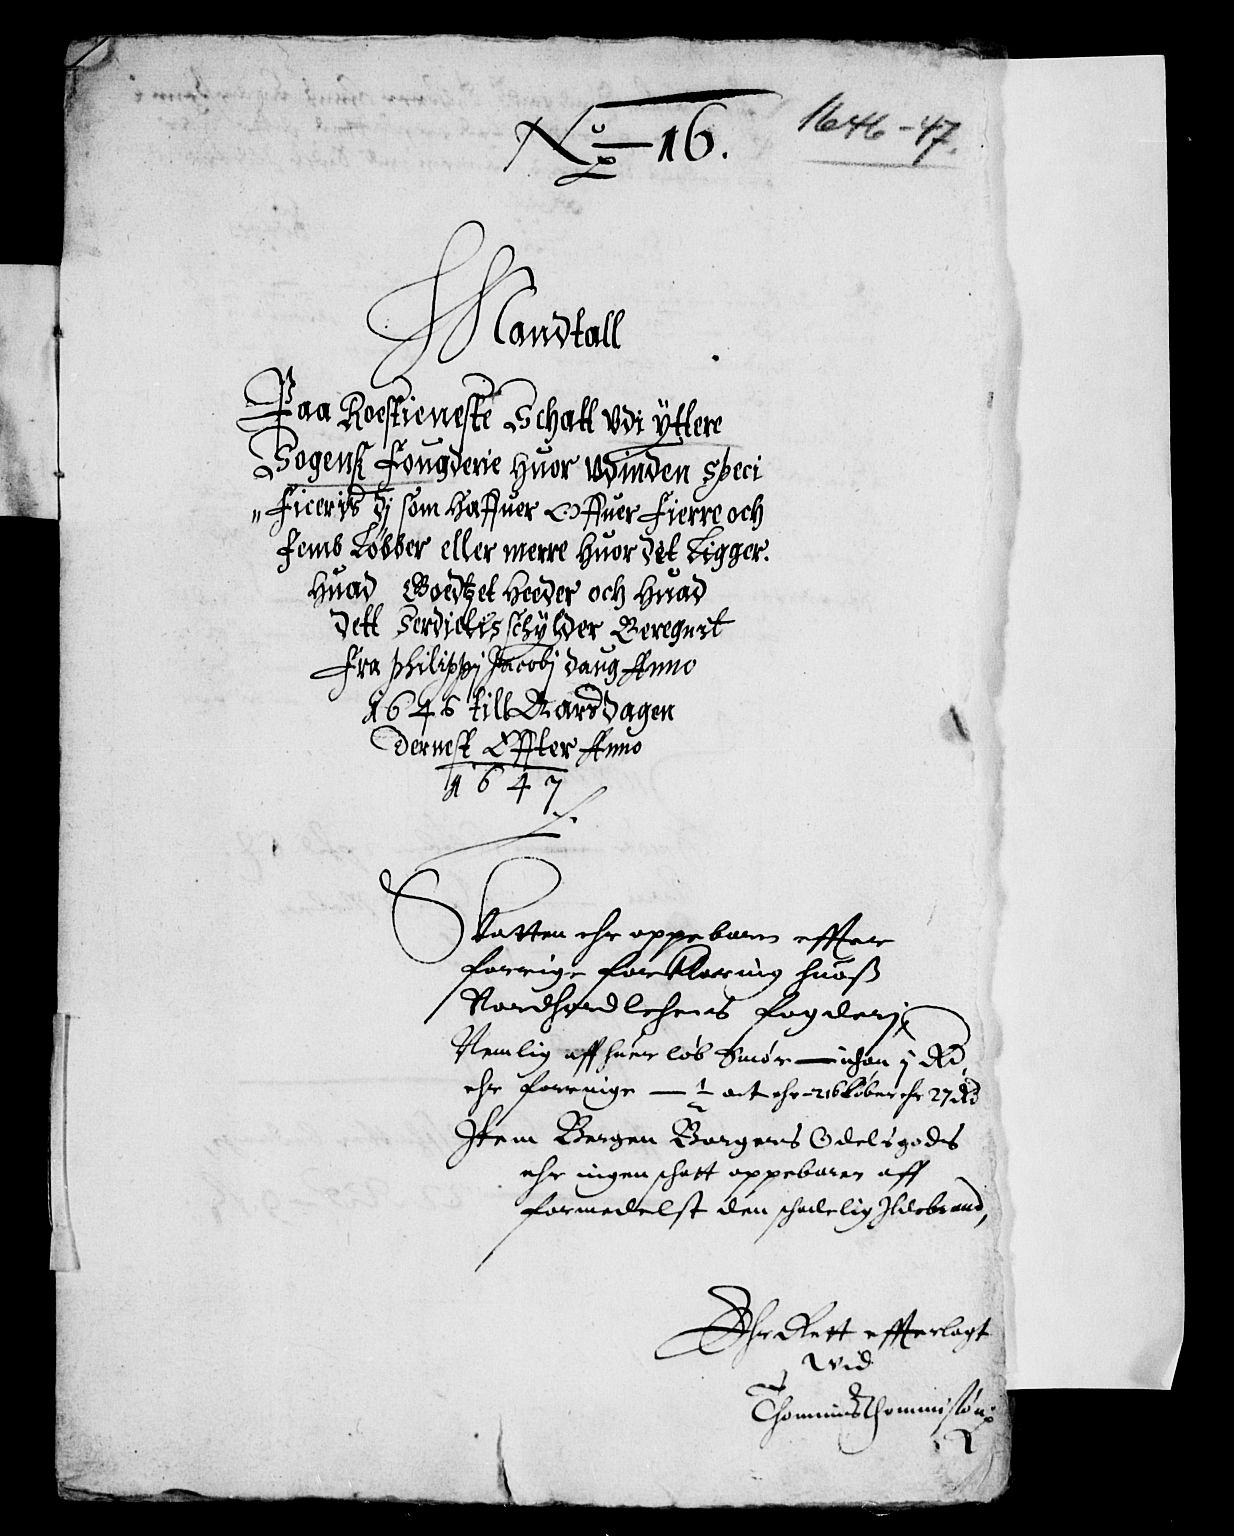 No 16.
1646-47.
Mandtall
Paa Roestieneste Schatt Udi Ÿttere
Sogensk Fougderie Huor Udinden Speci
„ficeris Dj som Haffuer Offuer Fierre och
femb Løbber eller merre Huor det Ligger.
Huad Goedtzet Heeder och Huad
Dett Serdielis schÿlder Beregnet
Fra Philippj Jacobj daug Anno
1646 till Aarsdagen
Dernest Effter Anno
1647
Skatten ehr oppebaren effter
forrige forklaring huoß
Nordhordlehens fogderj
Nemlig aff huer løb Smør — j Rd,
ehr — ½ ort ehr 216 Løber ehr 27 Rd
Item Bergen Borgers Odelsgods
ehr ingen schatt oppebaren aff
formedelst den schadelig Ildebrand,
Ehr Rett effterlagt
Wid